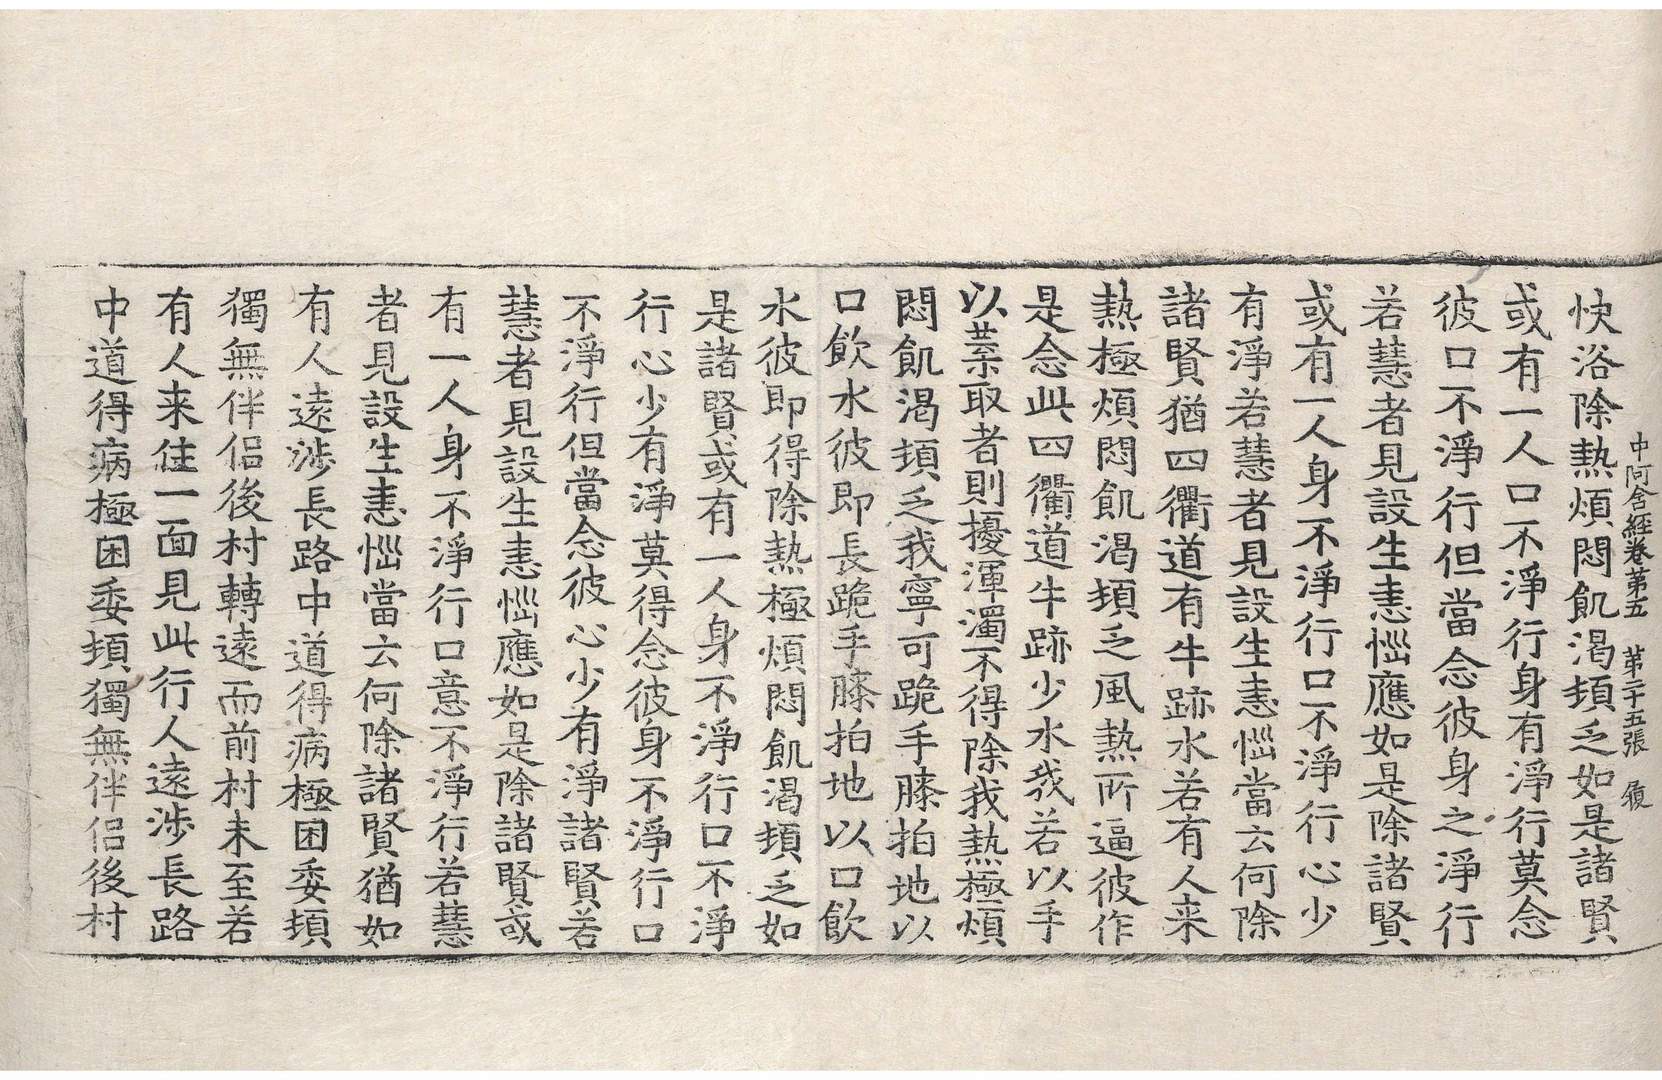 中阿含經卷第五 第二十五張 履
快浴除熱煩悶飢渴頓乏如是諸賢
或有一人口不淨行身有淨行莫念
彼口不淨行但當念彼身之淨行
若慧者見設生恚惱應如是除諸賢
或有一人身不淨行口不淨行心少
有淨若慧者見設生恚惱當云何除
諸賢猶四衢道有牛跡水若有人来
熱極煩悶飢渴頓乏風熱所逼彼作
是念此四衢道牛跡少水我若以手
以葉取者則擾渾濁不得除我熱極煩
悶飢渴頓乏我寧可跪手膝拍地以
口飲水彼即長跪手膝拍地以口飲
水彼即得除熱極煩悶飢渴頓乏如
是諸賢或有一人身不淨行口不淨
行心少有淨莫得念彼身不淨行口
不淨行但當念彼心少有淨諸賢若
慧者見設生恚惱應如是除諸賢或
有一人身不淨行口意不淨行若慧
者見設生恚惱當云何除諸賢猶如
有人遠涉長路中道得病極困委頓
獨無伴侶後村轉遠而前村未至若
有人来住一面見此行人遠涉長路
中道得病極困委頓獨無伴侶後村